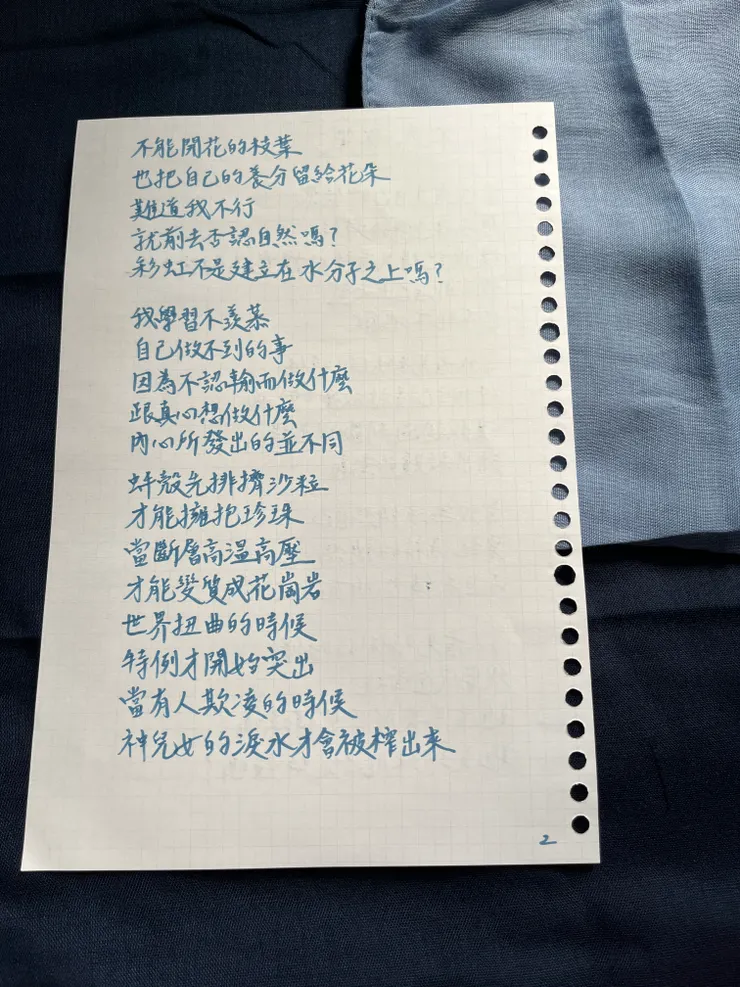 不能開花的枝葉
也把自己的養分留給花朵
難道我不行
就前去否認自然嗎？
彩虹不是建立在水分子之上嗎？
我學習不羨慕
自己做不到的事
因為不認輸而做什麼
跟真心想做什麼
內心所發出的並不同
蚌殼先排擠沙粒
才能擁抱珍珠
當斷層高溫高壓
才能變質成花崗岩
世界扭曲的時候
特例才開始突出
當有人欺凌的時候
神兒女的淚水才會被榨出來
2